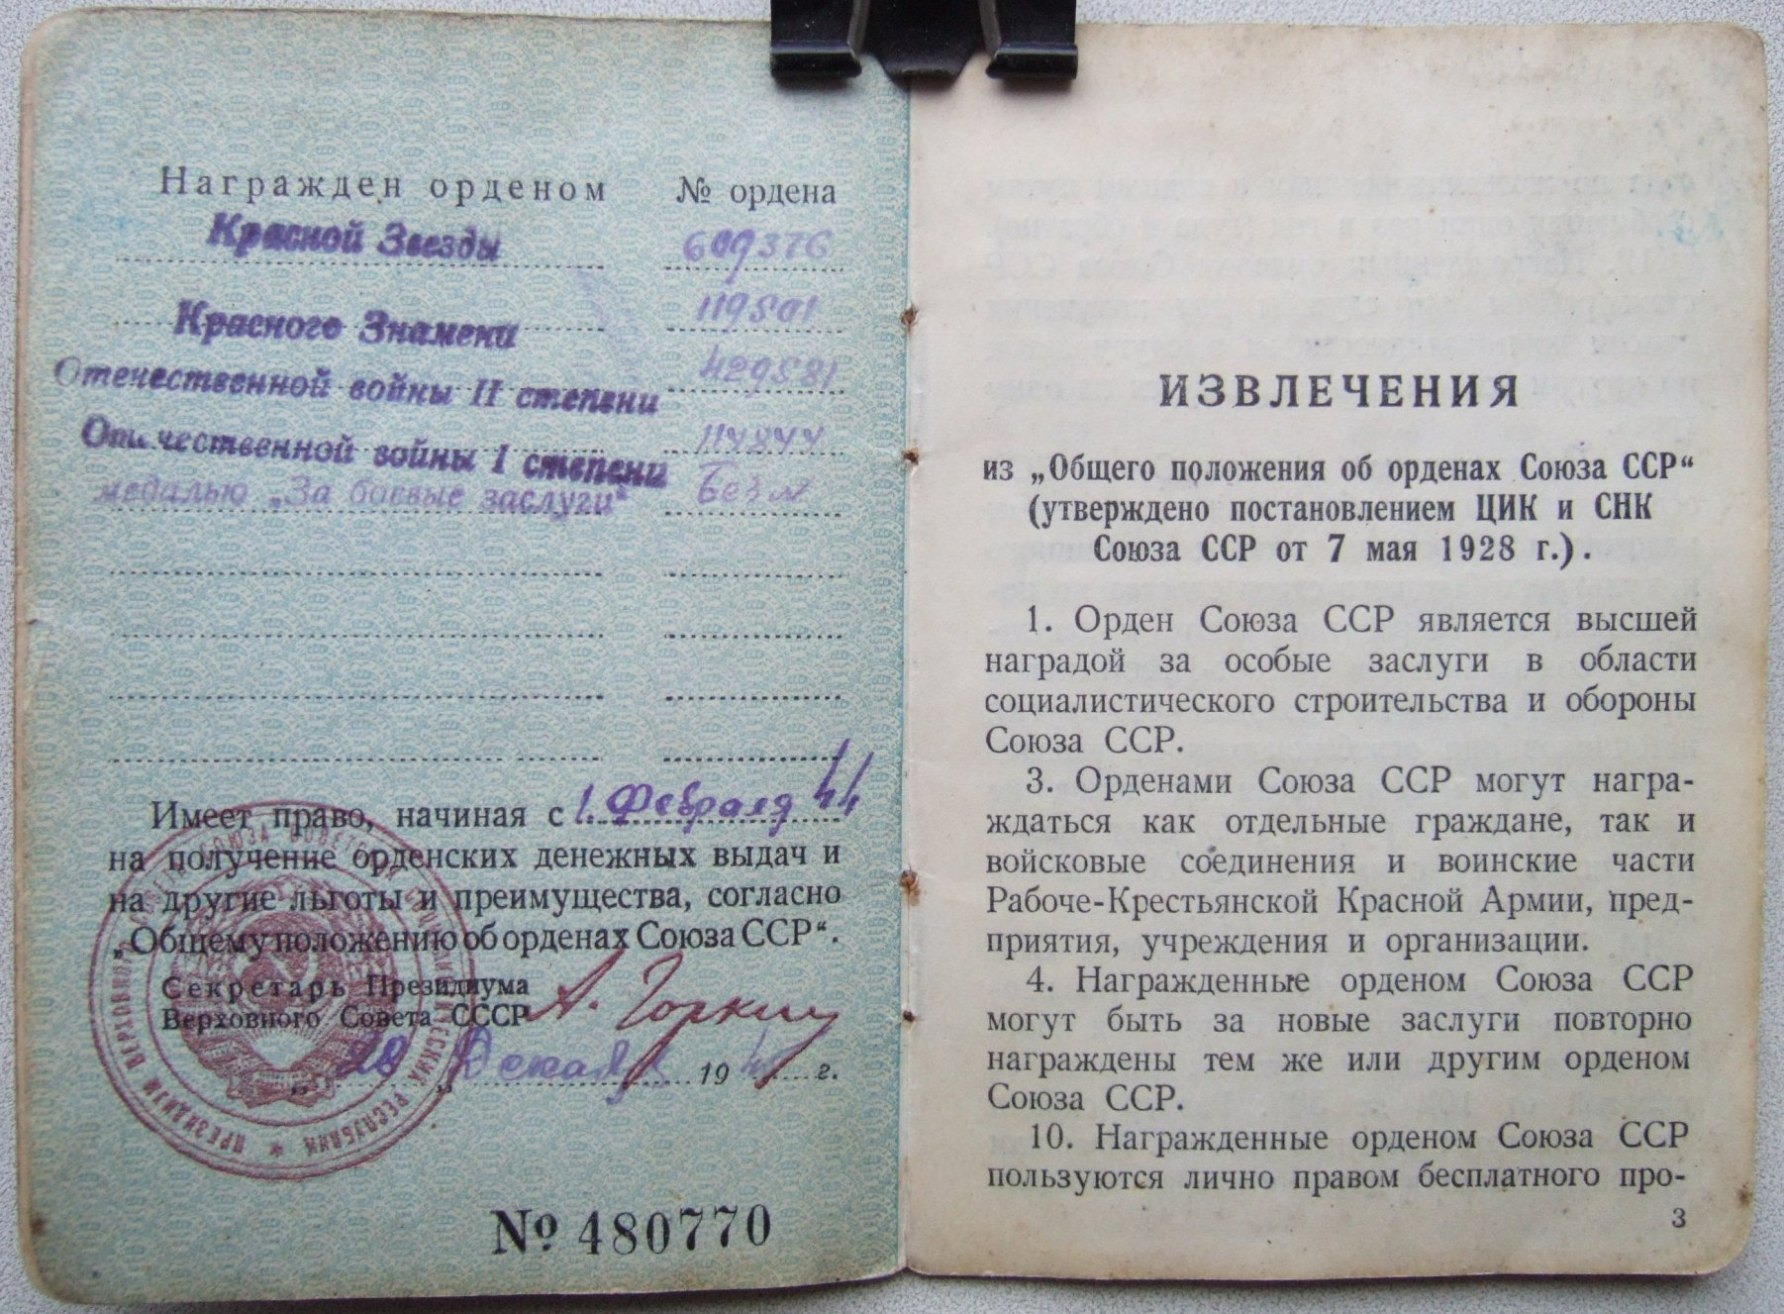 Награжден орденом № ордена
Красной Звезды 609376
Красного Знамени 119801
Отечественной войны II степени 429581
Отечественной войны I степени 114844
медалью „За боевые заслуги“ Без №
Имеет право, начиная с 1. Февраля 44
на получение орденских денежных выдач и
на другие льготы и преимущества, согласно
„Общему положению об орденах Союза ССР“.
Секретарь Президиума
Верховного Совета СССР А. Горкин
„28“ Декабря 19 г.
ПРЕЗИДИУМ ВЕРХОВНОГО
№ 480770
ИЗВЛЕЧЕНИЯ
из „Общего положения об орденах Союза ССР“
(утверждено постановлением ЦИК и СНК
Союза ССР от 7 мая 1928 г.).
1. Орден Союза ССР является высшей
наградой за особые заслуги в области
социалистического строительства и обороны
Союза ССР.
3. Орденами Союза ССР могут награ-
ждаться как отдельные граждане, так и
войсковые соединения и воинские части
Рабоче-Крестьянской Красной Армии, пред-
приятия, учреждения и организации.
4. Награжденные орденом Союза ССР
могут быть за новые заслуги повторно
награждены тем же или другим орденом
Союза ССР.
10. Награжденные орденом Союза ССР
пользуются лично правом бесплатного про-
3